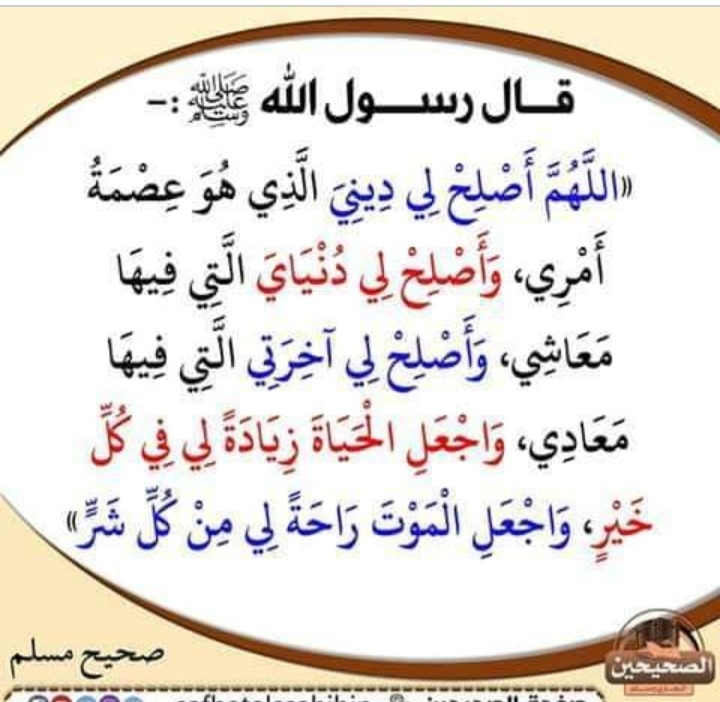 قال رسول الله ﷺ :-
«اللَّهُمَّ أَصْلِحْ لِي دِينِيَ الَّذِي هُوَ عِصْمَةُ
أَمْرِي، وَأَصْلِحْ لِي دُنْيَايَ الَّتِي فِيهَا
مَعَاشِي، وَأَصْلِحْ لِي آخِرَتِي الَّتِي فِيهَا
مَعَادِي، وَاجْعَلِ الْحَيَاةَ زِيَادَةً لِي فِي كُلِّ
خَيْرٍ، وَاجْعَلِ الْمَوْتَ رَاحَةً لِي مِنْ كُلِّ شَرٍّ»
صحيح مسلم
الصحيحين